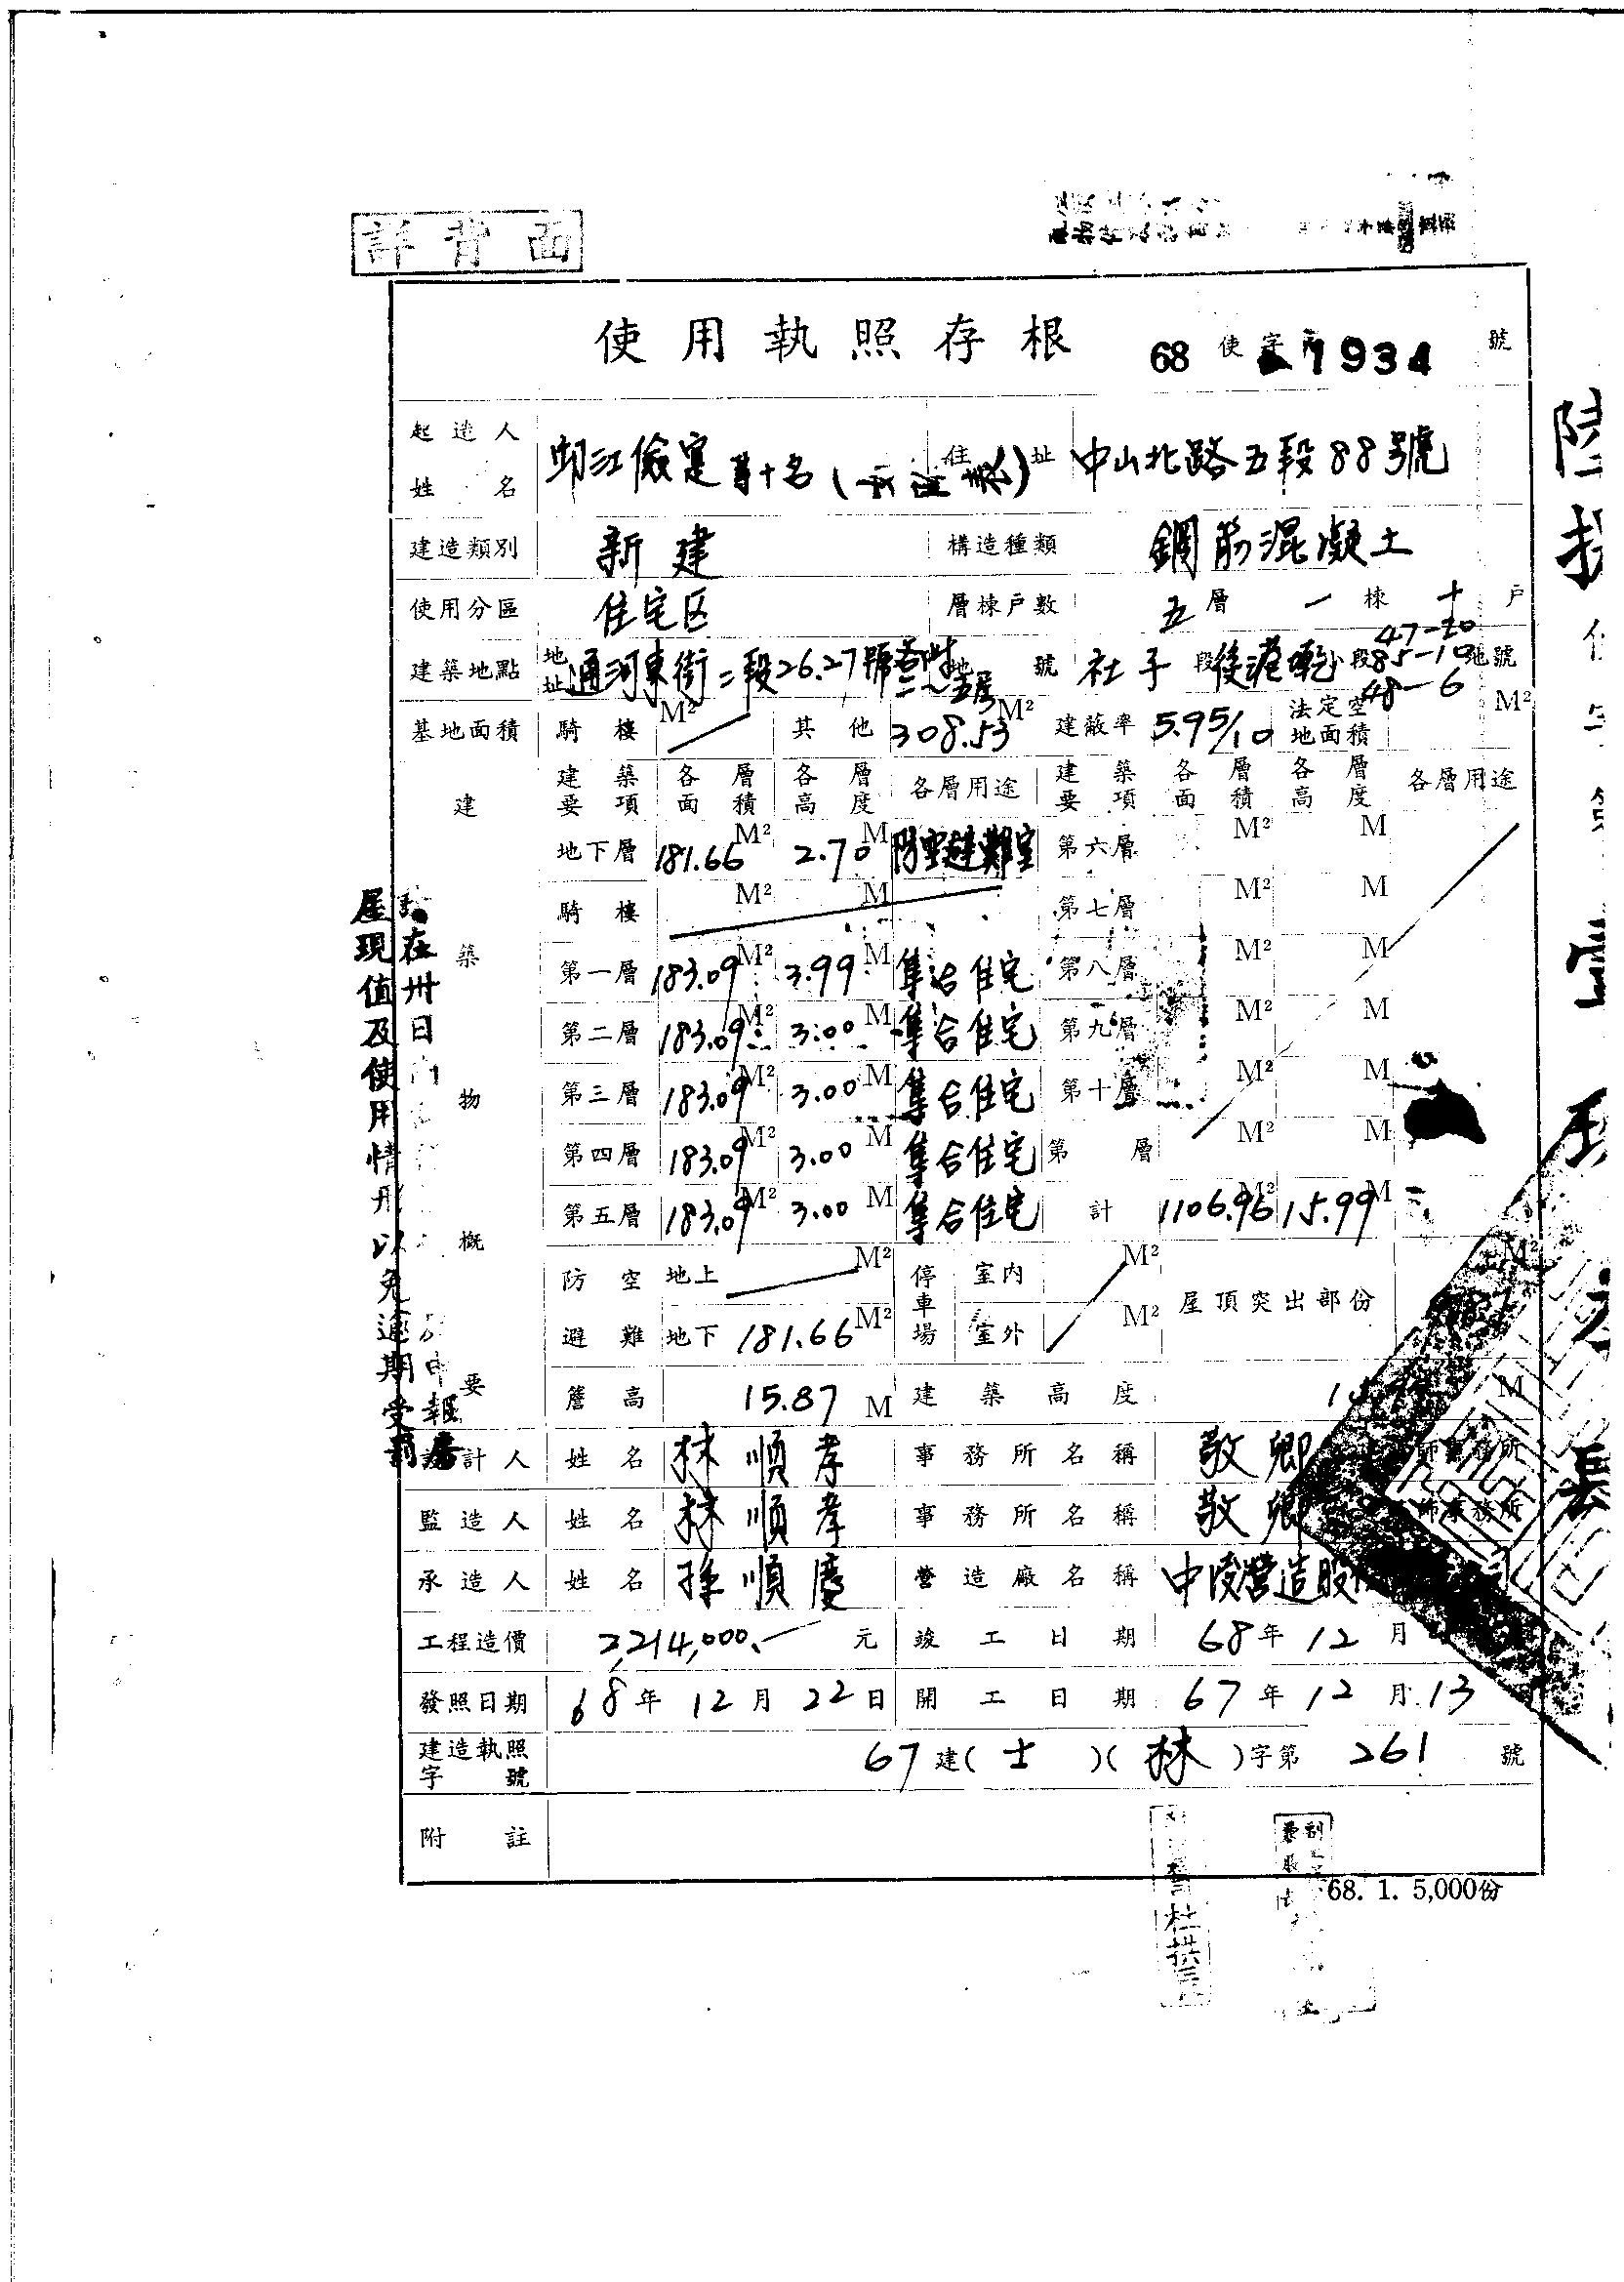 詳背面
使用執照存根 68 使字第 1934 號
起造人姓名 邱江儉 等十名 住址 中山北路五段88號
建造類別 新建 構造種類 鋼筋混凝土
使用分區 住宅区 層棟戶數 五層 一棟 十戶
建築地點 地址 通河東街二段26.27號 二~五层 地號 社子段後港墘小段 47-20 85-10 48-6 地號
基地面積 騎樓 M² 其他 308.53 M² 建蔽率 5.95/10 法定空地面積 M²
建築物概要
建築要項 各層面積 各層高度 各層用途 建築要項 各層面積 各層高度 各層用途
地下層 181.66 M² 2.70 M 防空避難室 第六層 M² M
騎樓 M² M 第七層 M² M
第一層 183.09 M² 3.99 M 集合住宅 第八層 M² M
第二層 183.09 M² 3.00 M 集合住宅 第九層 M² M
第三層 183.09 M² 3.00 M 集合住宅 第十層 M² M
第四層 183.09 M² 3.00 M 集合住宅 第 層 M² M
第五層 183.09 M² 3.00 M 集合住宅 計 1106.96 M² 15.99 M
防空避難 地上 M² 停車場 室內 M² 屋頂突出部份 M²
地下 181.66 M² 室外 M²
簷高 15.87 M 建築高度 M
設計人 姓名 林順孝 事務所名稱 敬卿 師事務所
監造人 姓名 林順孝 事務所名稱 敬卿 師事務所
承造人 姓名 孫順慶 營造廠名稱 中陵營造股 司
工程造價 2,214,000.- 元 竣工日期 68年12月
發照日期 68年12月22日 開工日期 67年12月13
建造執照字號 67建(士)(林)字第 261 號
附註
68. 1. 5,000份
在卅日
屋現值及使用情形以免逾期受罰